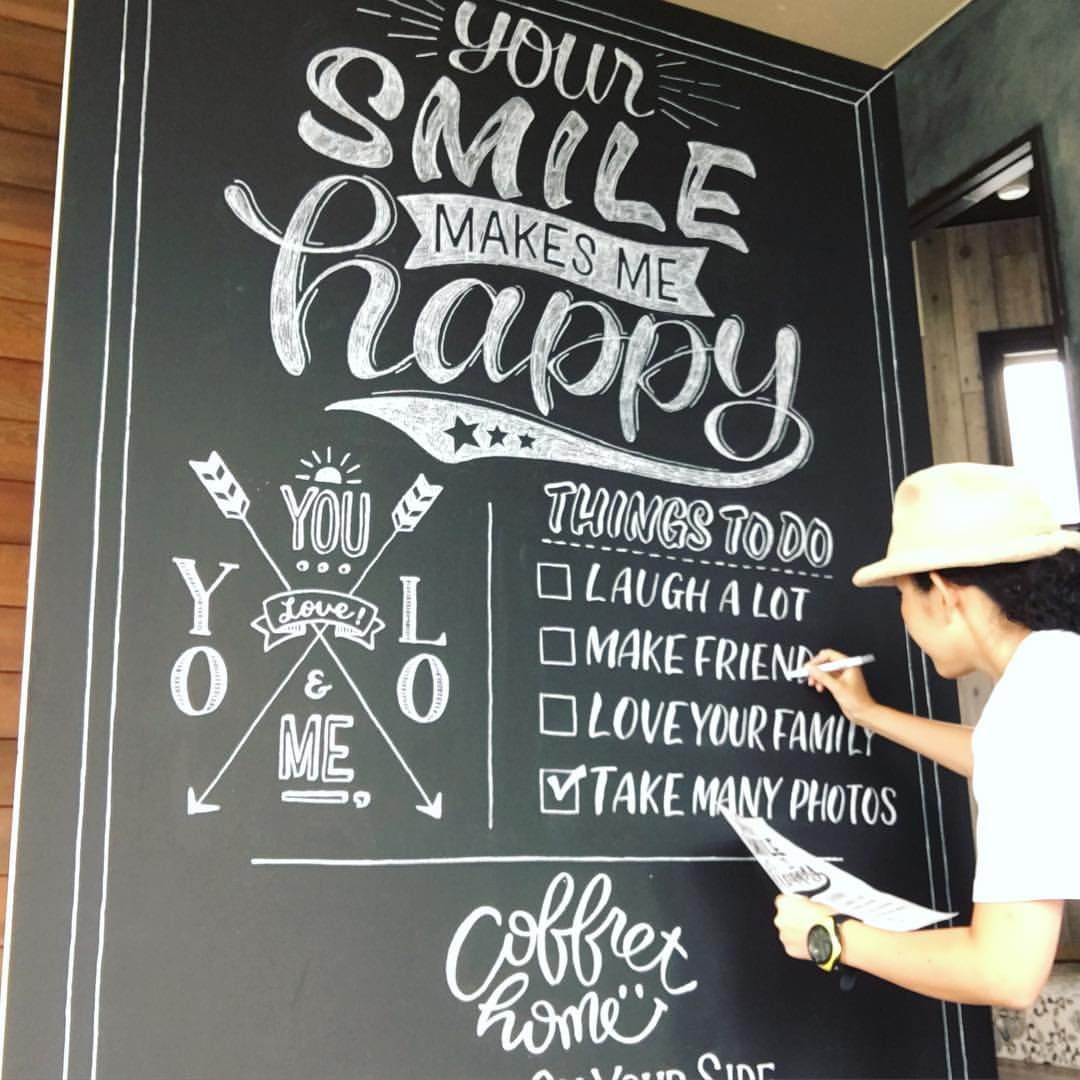 your
SMILE
MAKES ME
happy
YOU
YO
Love!
LO
&
ME
THINGS TO DO
LAUGH A LOT
MAKE FRIEND
LOVE YOUR FAMILY
TAKE MANY PHOTOS
coffret
home
ON YOUR SIDE
happy